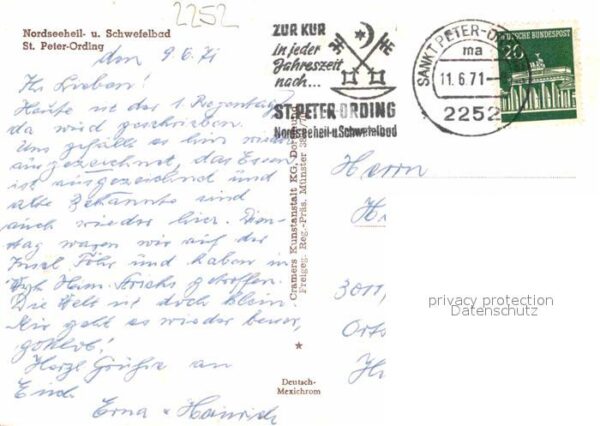 2252
Nordseeheil- u. Schwefelbad
St. Peter-Ording
den 9.6.71
Ihr Lieben!
Heute ist der 1. Regentag
da wird geschrieben.
Uns gefällt es hier wieder
ausgezeichnet, das Essen
ist ausgezeichnet und
alte Bekannte sind
auch wieder hier. Diens-
tag waren wir auf der
Insel Föhr und haben
getroffen.
Die Welt ist doch klein
Mir geht es wieder besser,
gottlob!
Herzl Grüße an
Euch
Erna u Heinrich
ZUR KUR
in jeder
Jahreszeit
nach...
ST. PETER-ORDING
Nordseeheil-u.Schwefelbad
SANKT PETER-O
ma
11.6.71
2252
DEUTSCHE BUNDESPOST
20
Cramers Kunstanstalt KG, Dortmund
Freigeg. Reg.-Präs. Münster
Deutsch-
Mexichrom
Herrn
H
3011,
Orts
H
privacy protection
Datenschutz